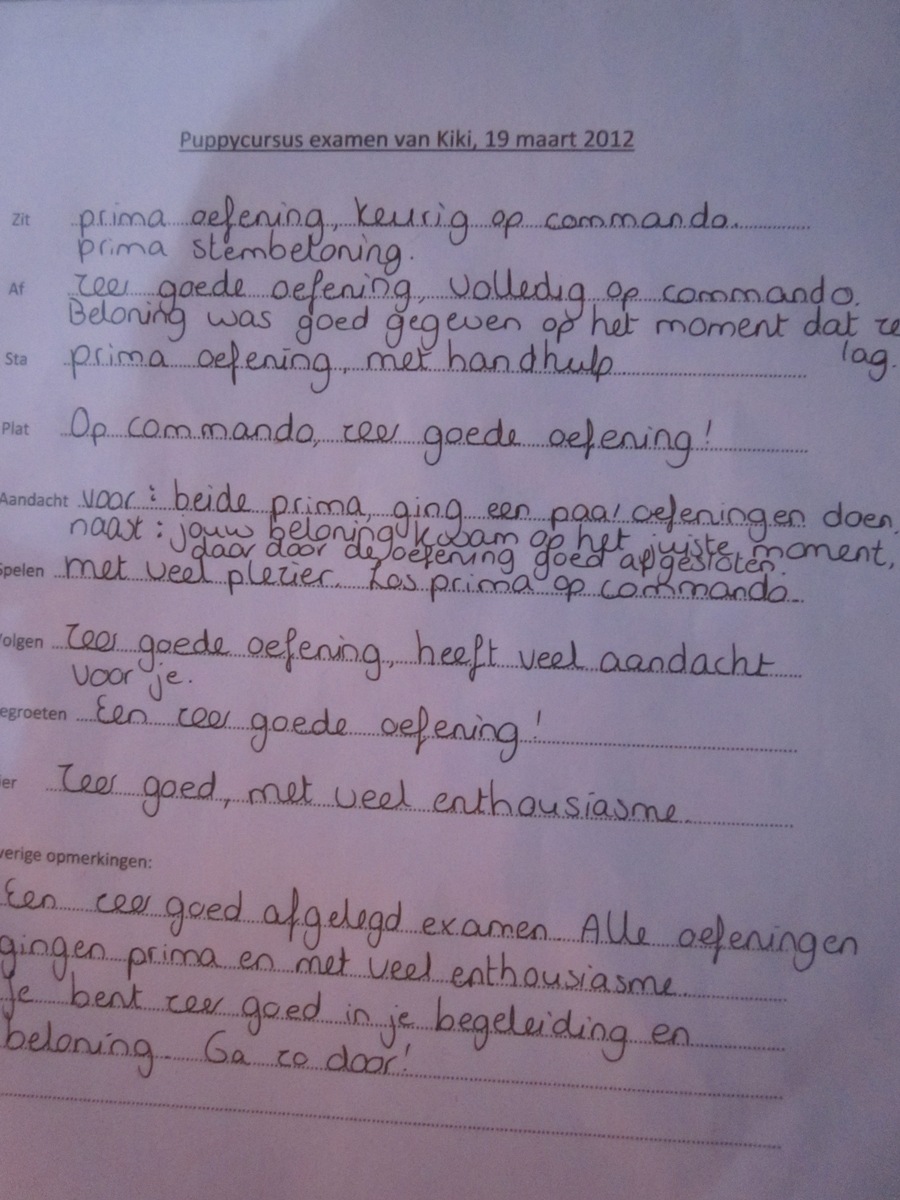 Puppycursus examen van Kiki, 19 maart 2012
Zit prima oefening, keurig op commando.
prima stembeloning.
Af zeer goede oefening, volledig op commando.
Beloning was goed gegeven op het moment dat ze
lag.
Sta prima oefening, met handhulp
Plat Op commando, zeer goede oefening!
Aandacht voor: beide prima, ging een paar oefeningen doen,
naast: jouw beloning kwam op het juiste moment,
daar door de oefening goed afgesloten.
Spelen met veel plezier. Los prima op commando.
olgen zeer goede oefening, heeft veel aandacht
voor je.
egroeten Een zeer goede oefening!
er Zeer goed, met veel enthousiasme.
verige opmerkingen:
Een zeer goed afgelegd examen. Alle oefeningen
gingen prima en met veel enthousiasme
Je bent zeer goed in je begeleiding en
beloning. Ga zo door!